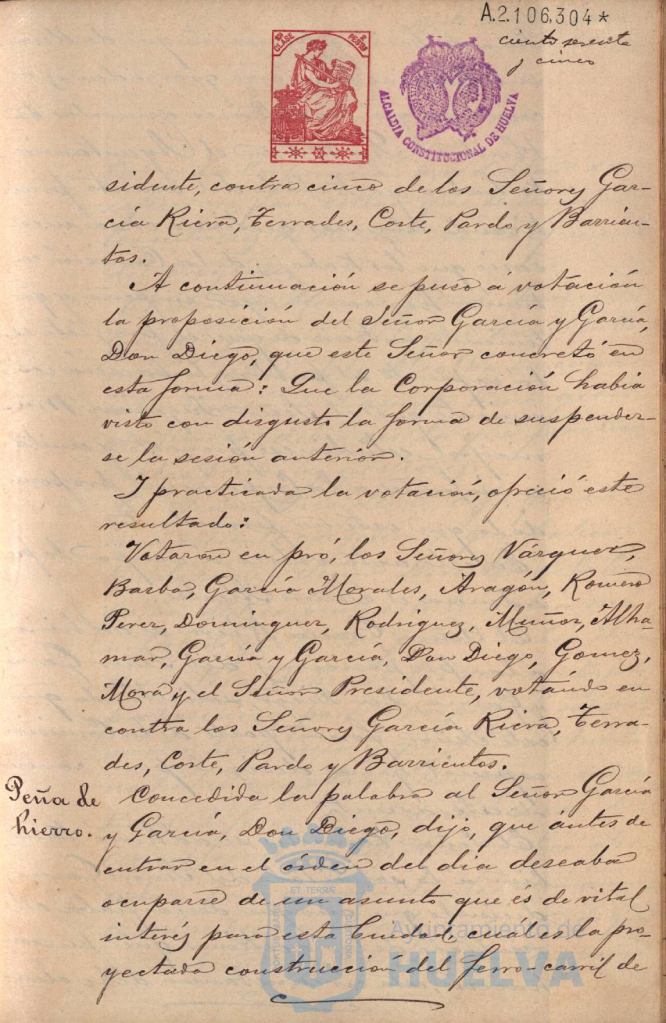 A.2.106.304*
ciento sesenta
y cinco
CLASE
ALCALDIA CONSTITUCIONAL DE HUELVA
sidente, contra cinco de los Señores Gar-
cía Riera, Terrades, Corte, Pardo y Barrien-
tos.
A continuación se puso á votación
la proposición del Señor García y García,
Don Diego, que este Señor concretó en
esta forma: Que la Corporación habia
visto con disgusto la forma de suspender-
se la sesión anterior.
I practicada la votación, ofreció este
resultado:
Votaron en pró, los Señores Vázquez,
Barba, García Morales, Aragón, Romero
Perez, Dominguez, Rodriguez, Muñoz, Alha-
mar, García y García, Don Diego, Gomez,
Mora y el Señor Presidente, votando en
contra los Señores García Riera, Terra-
des, Corte, Pardo y Barrientos.
Peña de
hierro.
Concedida la palabra al Señor García
y García, Don Diego, dijo, que ántes de
entrar en el órden del dia deseaba
ocuparse de un asunto que és de vital
interés para esta Ciudad, cuál es la pro-
yectada construcción del ferro-carril de
Ayuntamiento de
HUELVA